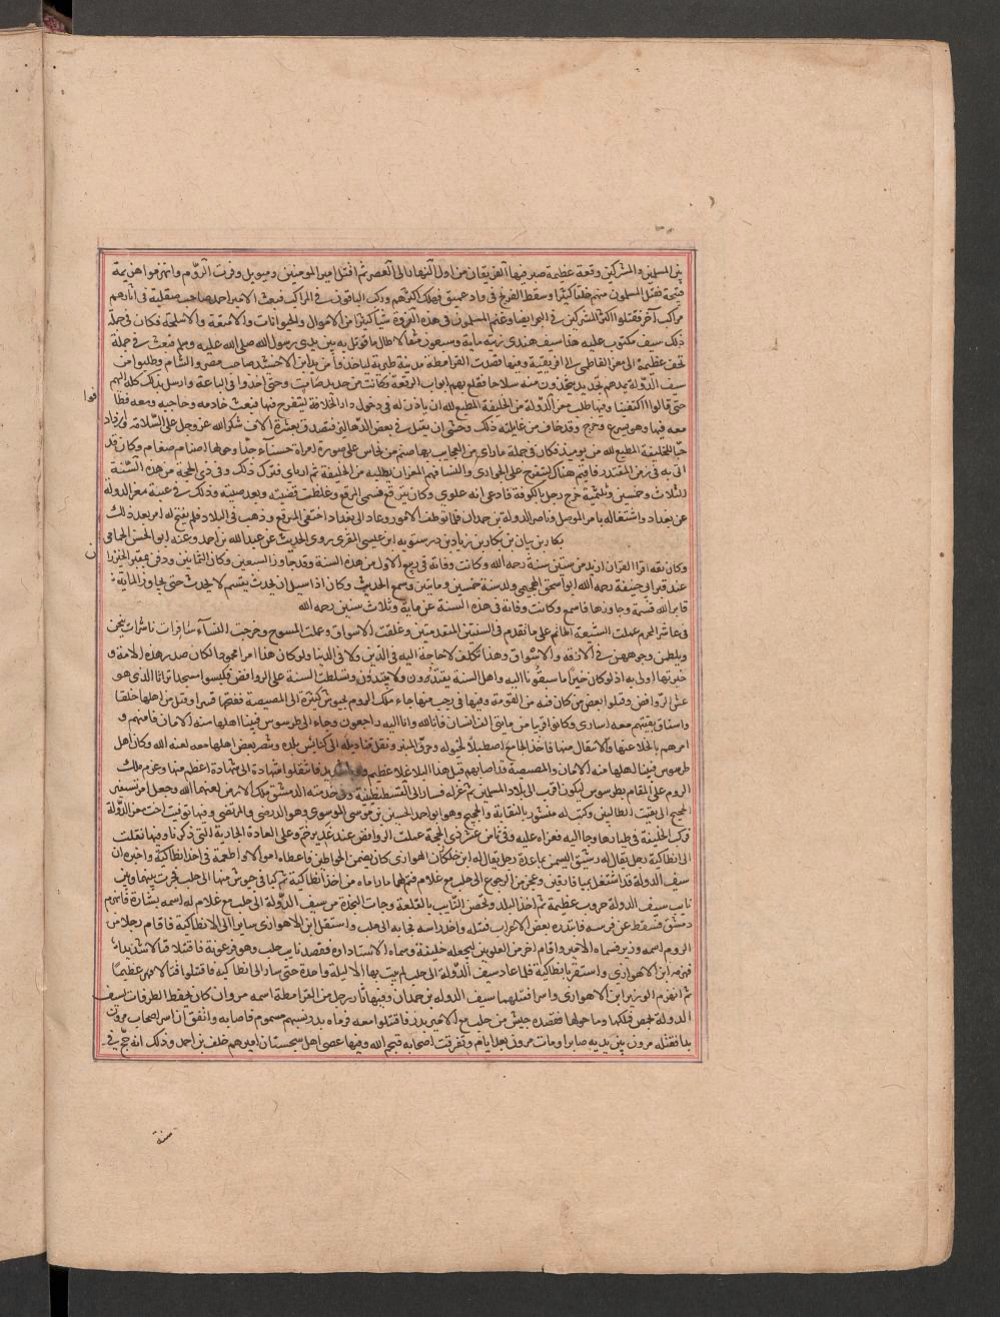 بين المسلمين والمشركين وقعة عظيمة صبر فيها الفريقان من اول النهار الى العصر ثم قتل امير المومنين ومنويل وفرت الروم وانهزموا هزيمة
قبيحة فقتل المسلمون منهم خلقا كثيرا وسقط الفرنج في واد عميق فهلك اكثرهم وركب الباقون في المراكب فبعث الامير احمد صاحب صقلية في اثارهم
مراكب اخر فقتلوا اكثر المشركين في البحر ايضا وغنم المسلمون في هذه الغزوة شيا كثيرا من الاموال والحيوانات والامتعة والاسلحة فكان في جملة
ذلك سيف مكتوب عليه هذا سيف هندي زنته ماية وسبعون مثقالا طال ما قوتل به بين يدي رسول الله صلى الله عليه وسلم فبعث في جملة
تحف عظيمة الى المعز الفاطمي الى افريقية وفيها قصدت القرامطة مدينة طبرية لياخذوا من يد ابن الاخشيد صاحب مصر والشام وطلبوا من
سيف الدولة يمدهم بحديد يتخذون منه سلاحا فقلع لهم ابواب الرقة وكانت من حديد صامت وحتى اخذوا في الباعة وارسل بذلك كله اليهم
حتى قالوا اكتفينا وفيها طلب معز الدولة من الخليفة المطيع لله ان ياذن له في دخول دار الخلافة ليتفرج فيها فبعث خادمه وحاجبه ومعه فطافوا
معه فيها وهو يسرع وخرج وقد خاف من غايلة ذلك وخشي ان يقتل في بعض الدهاليز فتصدق بعشرة الاف شكرا لله عز وجل على السلامة وازداد
حبا للخليفة المطيع لله من يوميذ فكان في جملة ما راى من العجايب بها صنم من نحاس على صورة امراة حسنآء جدا وحولها اصنام صغار وكان قد
اتي به في زمن المقتدر فاقيم هناك ليتفرج على الجواري والنسا فهم المعز ان يطلبه من الخليفة ثم ارتاى فترك ذلك وفي ذي الحجة من هذه السنة
لثلاث وخمسين وثلثمية خرج رجل بالكوفة فادعى انه علوي وكان يتبرقع فسمى المبرقع وغلظت قضيته وبعد صيته وذلك في غيبة معز الدولة
عن بغداد واشتغاله بامر الموصل وناصر الدولة بن حمدان فلما توطنت الامور وعاد الى بغداد اختفى المبرقع وذهب في البلاد فلم يفتح له امر بعد ذلك
بكار بن بيان بن بكار بن زياد بن درستويه ابن عيسى المقري روى الحديث عن عبد الله بن احمد وعنه ابو الحسن الحمامي
وكان ثقه اقرا القران ازيد من ستين سنة رحمه الله وكانت وفاته في ربيع الاول من هذه السنة وقد جاوز السبعين وكان الثمانين ودفن بمقبر الخيزران
عند قبر ابي حنيفة رحمه الله ابو اسحق الهجيمي ولد سنة خمسين وماتين وسمع الحديث وكان اذا سيل ان يحدث يقسم لا يحدث حتى يجاوز الماية
فابر الله قسمه وجاوزها فاسمع وكانت وفاته في هذه السنة عن ماية وثلاث سنين رحمه الله
في عاشر المحرم عملت الشيعة الماتم على ما تقدم في السنتين المتقدمتين وغلقت الاسواق وعلت المسوح وخرجت النسآء سافرات ناشرات ينحن
ويلطمن وجوههن في الازقه والاسواق وهذا تكلف لا حاجة اليه في الدين ولا في الدنيا ولو كان هذا امرا محمودا لكان صدر هذه الامة و
خيرتها اولى به اذ لو كان خيرا ما سبقونا اليه واهل السنة يقتدون ولا يبتدون وتسلطت السنة على الروافض فكبسوا مسجد براثا الذي هو
عش الروافض وقتلوا بعض من كان فيه من القومة وفيها في رجب منها جاء ملك الروم بجيوش كثيرة الى المصيصة ففتحها قسرا وقتل من اهلها خلقا
واستاق بقيتهم معه اسارى وكانوا قريبا من مايتي الف انسان فانا لله وانا اليه راجعون وجاء الى طرسوس فسال اهلها منه الامان فامنهم و
امرهم بالجلاء عنها والانتقال منها فاخذ الجامع اصطبلا لخيوله وحرق المنبر ونقل قناديله الى كنايس بلده وتنصر بعض اهلها معه لعنه الله وكان اهل
طرسوس والمصيصة قد اصابهم قبل هذا البلا غلا عظيم شديد فانتقلوا من شهادة الى شهادة اعظم منها وعزم ملك
الروم على المقام بطرسوس ليكون اقرب الى بلاد المسلمين ثم عن له فسار الى القسطنطينة وفي خدمته الدمستق ملك الارمن لعنهما الله وجعل امر تسفير
الحجيج الى نقيب الطالبيين وكتب له منشور بالنقابة والحجيج وهو ابو احمد الحسين بن موسى الموسوي وهو والد الرضي والمرتضى وفيها توفيت اخت معز الدولة
فركب الخليفة في طيارة وجا اليه فعزاه عليه وفي ثامن عشر ذي الحجة عملت الروافض عيد غدير خم وعلى العادة الجارية التي ذكرنا وفيها تغلبت
الى انطاكية رجل يقال له رشيق النسيمي بمساعدة رجل يقال له ابن الاهوازي كان يضمن الطواحين فاعطاه اموالا واطمعه في اخذ انطاكية واخبره ان
سيف الدولة قد اشتغل بميافارقين وعجز عن الرجوع الى حلب مع غلام فتم لهما ما راماه من اخذ انطاكية ثم ركبا في جيوش منها الى حلب فجرت بينهما وبين
نايب سيف الدولة حروب عظيمة ثم اخذ البلد وتحصن النايب بالقلعة وجات النجدة من سيف الدولة الى حلب مع غلام له اسمه بشارة فانهزم
دمشق فسقط عن فرسه فابتدره بعض الاعراب فقتله واخذ راسه فجا به الى حلب واستقل ابن الاهوازي سايرا الى انطاكية فاقام رجلا من
الروم اسمه وزير فسماه الامير واقام اخر من العلويين ليجعله خليفة وسماه الاستاد اره فقصد نايب حلب وهو قرعوية فاقتتلا قتالا شديدا
فهزمه ابن الاهوازي واستقر بانطاكية فلما عاد سيف الدولة الى حلب لم يبت بها الا ليلة واحدة حتى سار الى انطاكيه فاقتتلوا قتالا عظيما
ثم انهزم الوزير وابن الاهوازي واسرا فقتلهما سيف الدوله بن حمدان وفيها ثار رجل من القرامطة اسمه مروان كان يحفظ الطرقات لسيف
الدولة بحمص فملكها وما حولها فقصده جيش من حلب مع الامير بدر فاقتتلوا معه فرماه بدر بسهم مسموم فاصابه واتفق ان اسر اصحاب مروان
بدرا فقتله مروان بين يديه صابرا ومات مروان بعد ايام وتفرقت اصحابه قبحهم الله وفيها عصى اهل سجستان اميرهم خلف بن احمد وذلك انه حج في
سنة